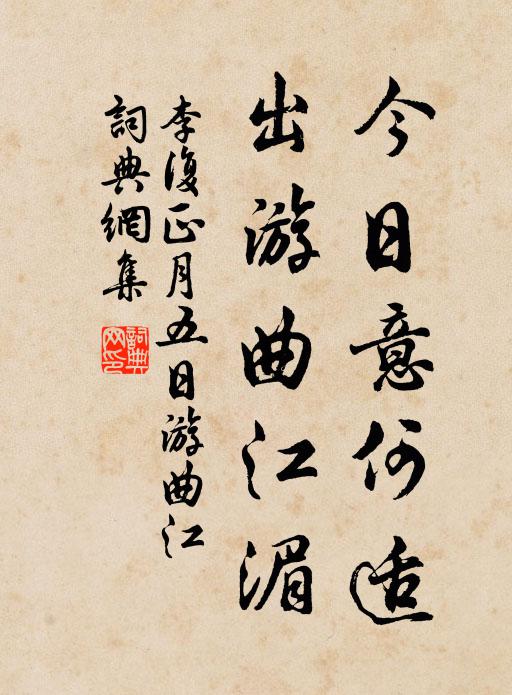 今日意何适
出游曲江湄
李復正月五日游曲江
詞典網集
詞典网印